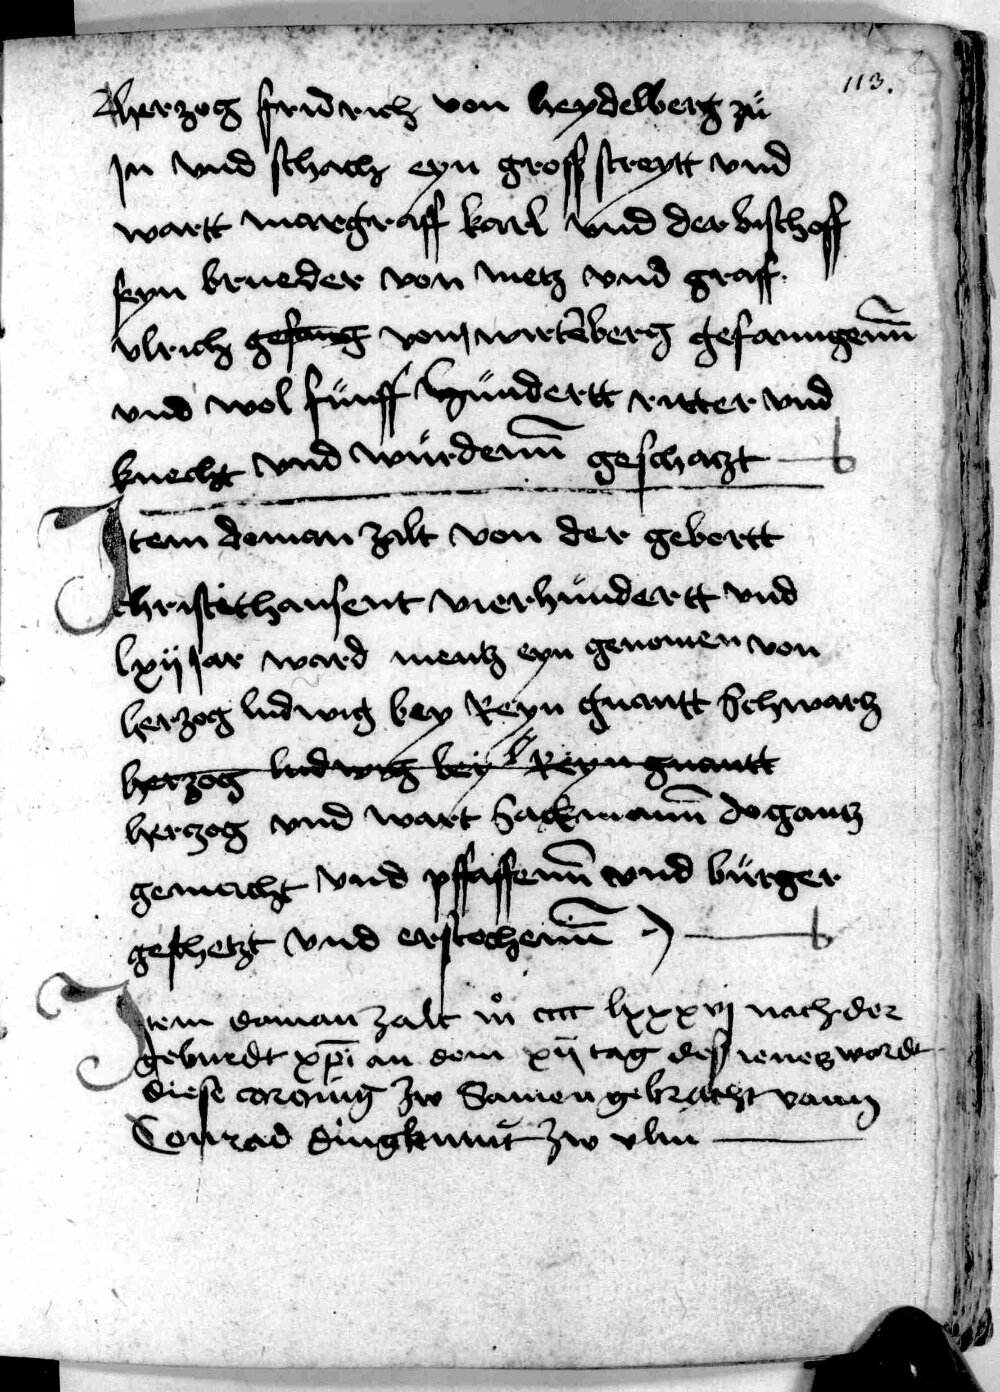 113.
herzog fridrich von heydelberg zü
Jn vnd schach eyn gross streytt vnd
wartt margraff karl vnd der bischoff
seyn brueder von metz vnd graff
vlrich gefang von wirtēberg gefanngenn̄
vnd wol fünff hündertt ritter vnd
knecht vnd würdenn̄ geschatzt
Jtem do man zalt von der geburtt
christi thausent vierhündertt vnd
lxij Jar ward mentz eyn genomen von
herzog ludwig bey Reyn gnantt Schwartz
herzog ludwig bey Reyn gnantt
herczog vnd wart sackmann̄ do gantz
gemacht vnd pfaffenn̄ vnd bürger
geschetzt vnd erstochenn̄
Jtem do man zalt m° cccc lxxxvj nach der
geburdt xp̄i an dem xij tag des ieners wordt
diese coronig zw Samen gebracht vonn
Conrad dingkmut zw vlm